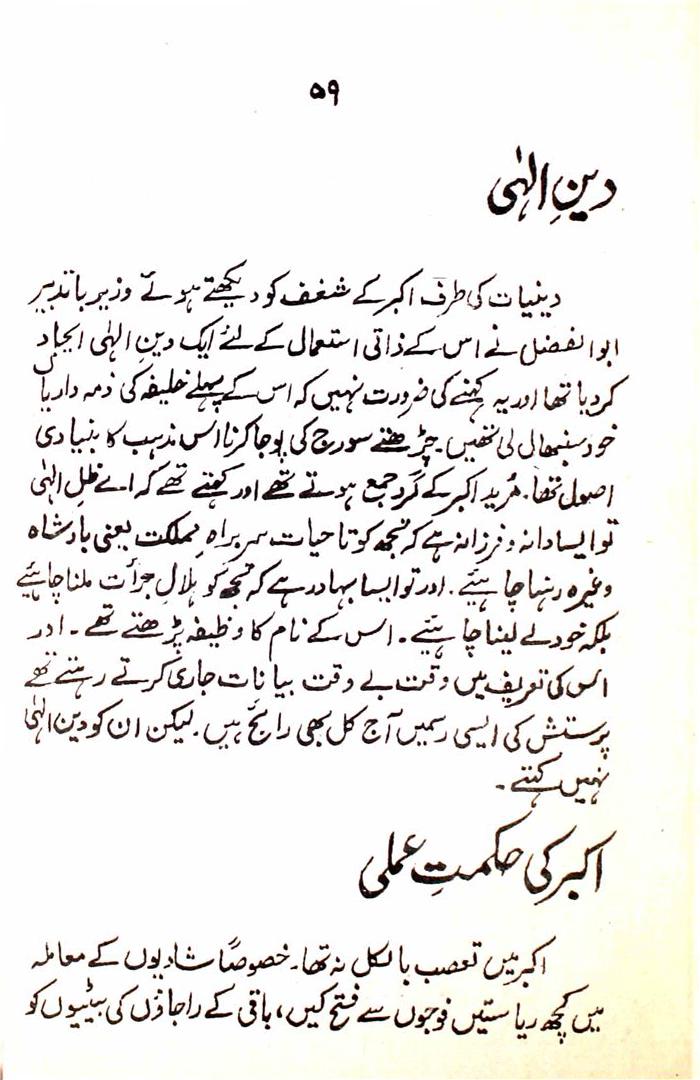 ۵۹
دینِ الٰہی
دینیات کی طرف اکبر کے شغف کو دیکھتے ہوئے وزیر باتدبیر
ابوالفضل نے اس کے ذاتی استعمال کے لئے ایک دینِ الٰہی ایجاد
کر دیا تھا اور یہ کہنے کی ضرورت نہیں کہ اس کے پہلے خلیفہ کی ذمہ داریاں
خود سنبھال لی تھیں۔ چڑھتے سورج کی پوجا کرنا اس مذہب کا بنیادی
اصول تھا۔ مُرید اکبر کے گرد جمع ہوتے تھے اور کہتے تھے کہ اے ظلِ الٰہی
تو ایسا دانہ و فرزانہ ہے کہ تجھ کو تا حیات سربراہِ مملکت یعنی بادشاہ
وغیرہ رہنا چاہیئے۔ اور تو ایسا بہادر ہے کہ تجھے کو ہلالِ جرأت ملنا چاہیئے
بلکہ خود لے لینا چاہیئے۔ اس کے نام کا وظیفہ پڑھتے تھے۔ اور
اس کی تعریف میں وقت بے وقت بیانات جاری کرتے رہتے تھے
پرستش کی ایسی رسمیں آج کل بھی رائج ہیں۔ لیکن ان کو دینِ الٰہی
نہیں کہتے۔
اکبر کی حکمتِ عملی
اکبر میں تعصب بالکل نہ تھا۔ خصوصاً شادیوں کے معاملہ
میں کچھ ریاستیں فوجوں سے فتح کیں، باقی کے راجاؤں کی بیٹیوں کو